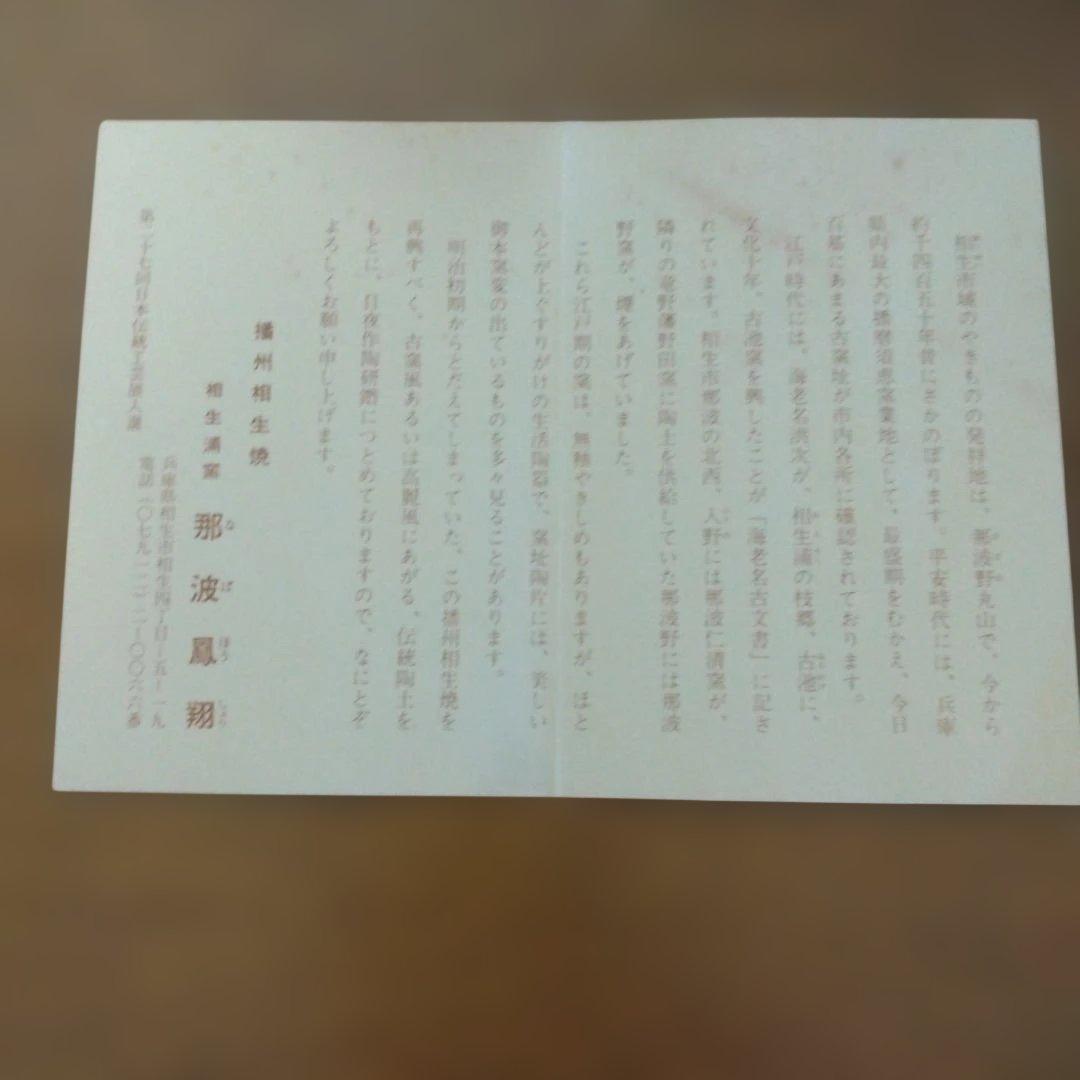 相生市域のやきものの発祥地は、那波野丸山で、今から
約千四百五十年昔にさかのぼります。平安時代には、兵庫
県内最大の播磨須恵窯業地として、最盛期をむかえ、今日
百基にあまる古窯址が市内各所に確認されております。
江戸時代には、海老名浜次が、相生浦の枝郷、古池に、
文化十年、古池窯を興したことが「海老名古文書」に記さ
れています。相生市那波の北西、入野には那波仁清窯が、
隣りの竜野藩野田窯に陶土を供給していた那波野には那波
野窯が、煙をあげていました。
これら江戸期の窯は、無釉やきしめもありますが、ほと
んどが上ぐすりがけの生活陶器で、窯址陶片には、美しい
御本窯変の出ているものを多々見ることがあります。
明治初期からとだえてしまっていた、この播州相生焼を
再興すべく、古窯風あるいは高麗風にあがる、伝統陶土を
もとに、日夜作陶研鑽につとめておりますので、なにとぞ
よろしくお願い申し上げます。
播州相生焼
相生浦窯 那波鳳翔
なばほうしょう
兵庫県相生市相生四丁目一五ー一九
電話(〇七九一二)二ー〇〇六六番
第二十七回日本伝統工芸展入選